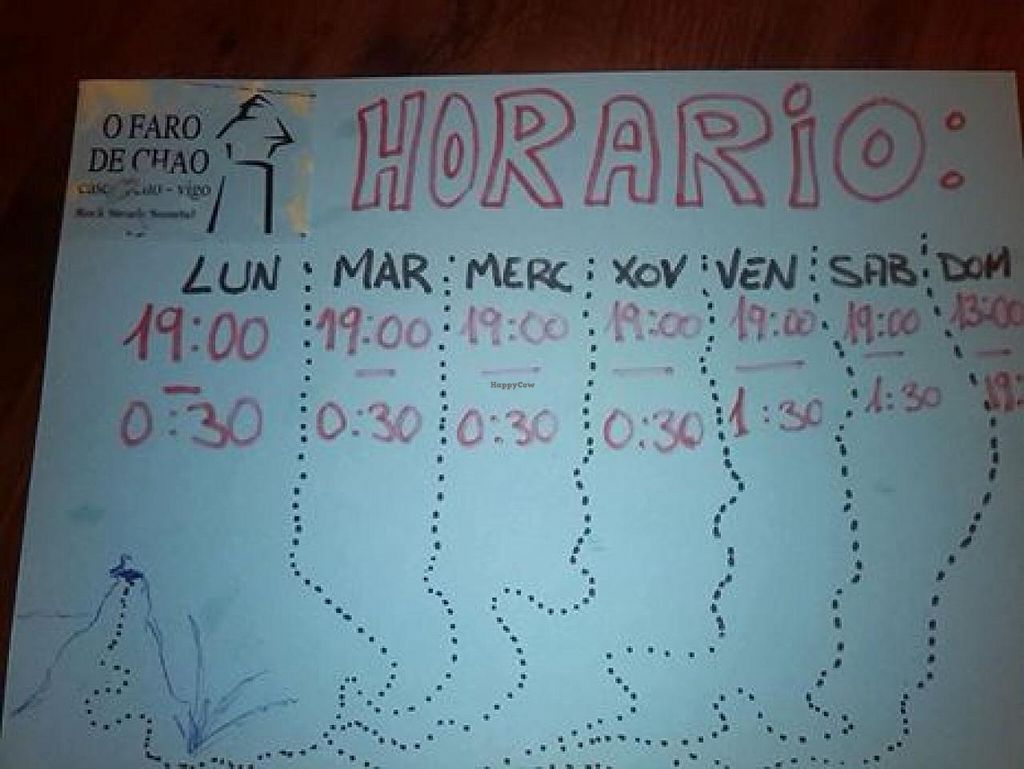 O FARO
DE CHAO
- vigo
HORARIO:
LUN MAR MERC XOV VEN SAB DOM
19:00 19:00 19:00 19:00 19:00 19:00 13:00
— — — — — — —
0:30 0:30 0:30 0:30 1:30 1:30
HappyCow